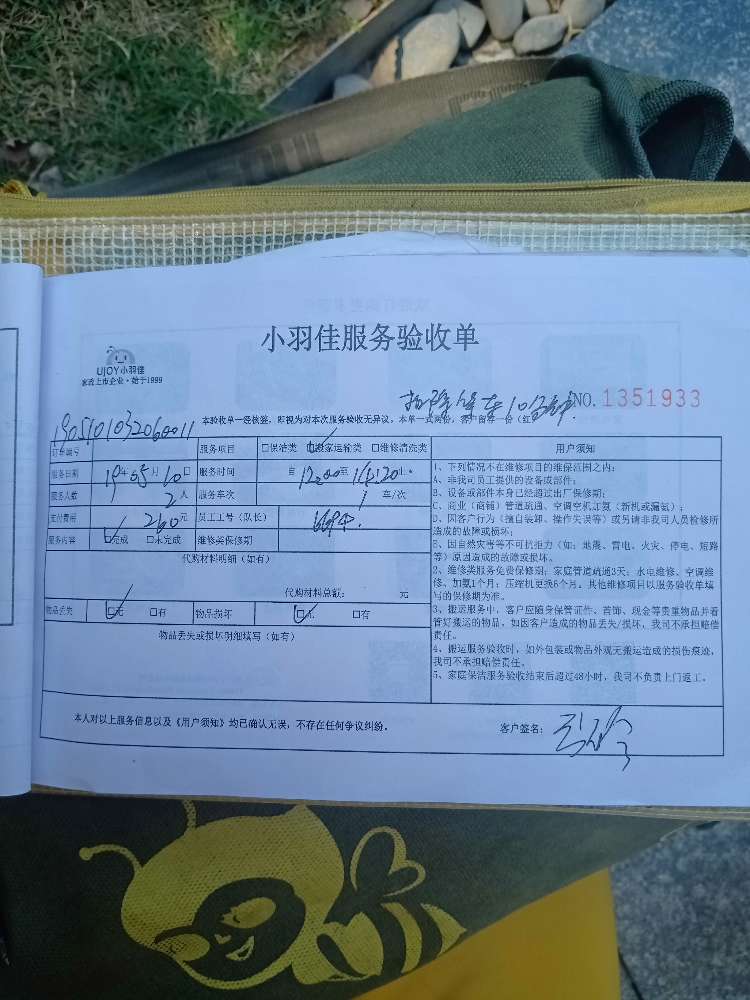 小羽佳服务验收单
UJOY小羽佳
家政上市企业·始于1999
扣除等车10分钟
NO. 1351933
本验收单一经核签，即视为对本次服务验收无异议，本单一式两份，客户留存一份（红）
1905101032060011
订单编号 服务项目 口保洁类 口搬家运输类 口维修清洗类 用户须知
服务日期 19年05月10日 服务时间 自12:00至14:20止
服务人数 2人 服务车次 1车/次
支付费用 260元 员工工号（队长）
服务内容 口完成 口未完成 维修类保修期
代购材料明细（如有）
代购材料总额： 元
物品丢失 口无 口有 物品损坏 口无 口有
物品丢失或损坏明细填写（如有）
1、下列情况不在维修项目的维保范围之内：
A、非我司员工提供的设备或部件；
B、设备或部件本身已经超过出厂保修期；
C、商业（商铺）管道疏通、空调空机加氨（新机或漏氨）；
D、因客户行为（擅自装卸、操作失误等）或另请非我司人员检修所
造成的故障或损坏；
E、因自然灾害等不可抗拒力（如：地震、雷电、火灾、停电、短路
等）原因造成的故障或损坏。
2、维修类服务免费保修期：家庭管道疏通3天；水电维修、空调维
修、加氨1个月；压缩机更换6个月。其他维修项目以服务验收单填
写的保修期为准。
3、搬运服务中，客户应随身保管证件、首饰、现金等贵重物品并看
管好搬运的物品，如因客户造成的物品丢失/损坏，我司不承担赔偿
责任。
4、搬运服务验收时，如外包装或物品外观无搬运造成的损伤痕迹，
我司不承担赔偿责任。
5、家庭保洁服务验收结束后超过48小时，我司不负责上门返工。
本人对以上服务信息以及《用户须知》均已确认无误，不存在任何争议纠纷。 客户签名：